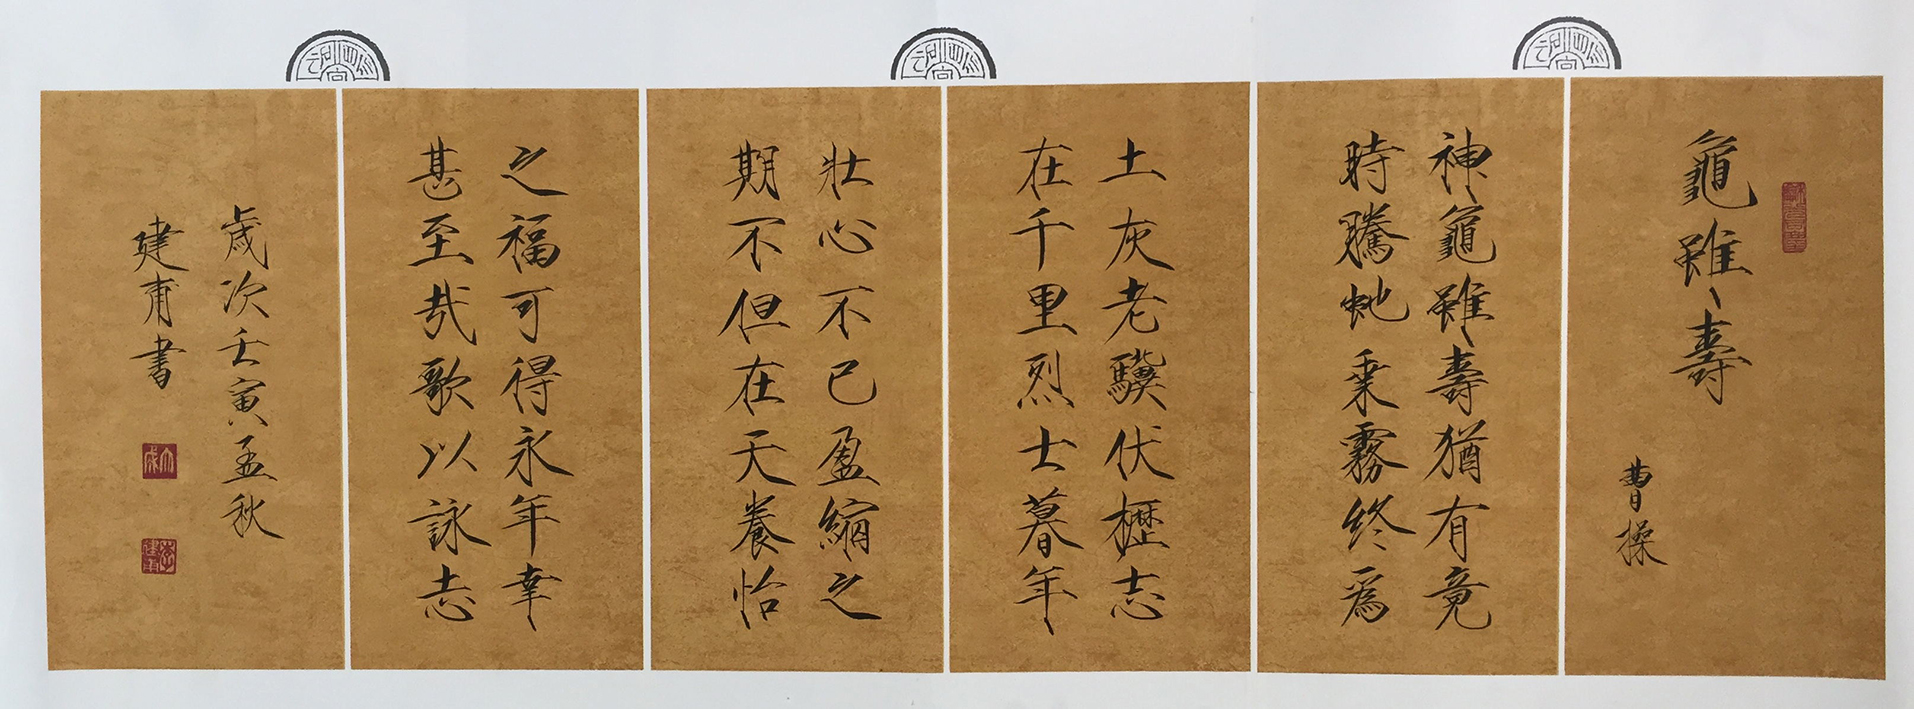 龜雖壽
曹操
神龜雖壽猶有竟
時騰虵乗霧終爲
土灰老驥伏櫪志
在千里烈士暮年
壯心不已盈縮之
期不但在天養怡
之福可得永年幸
甚至哉歌以詠志
歲次壬寅孟秋
建甫書